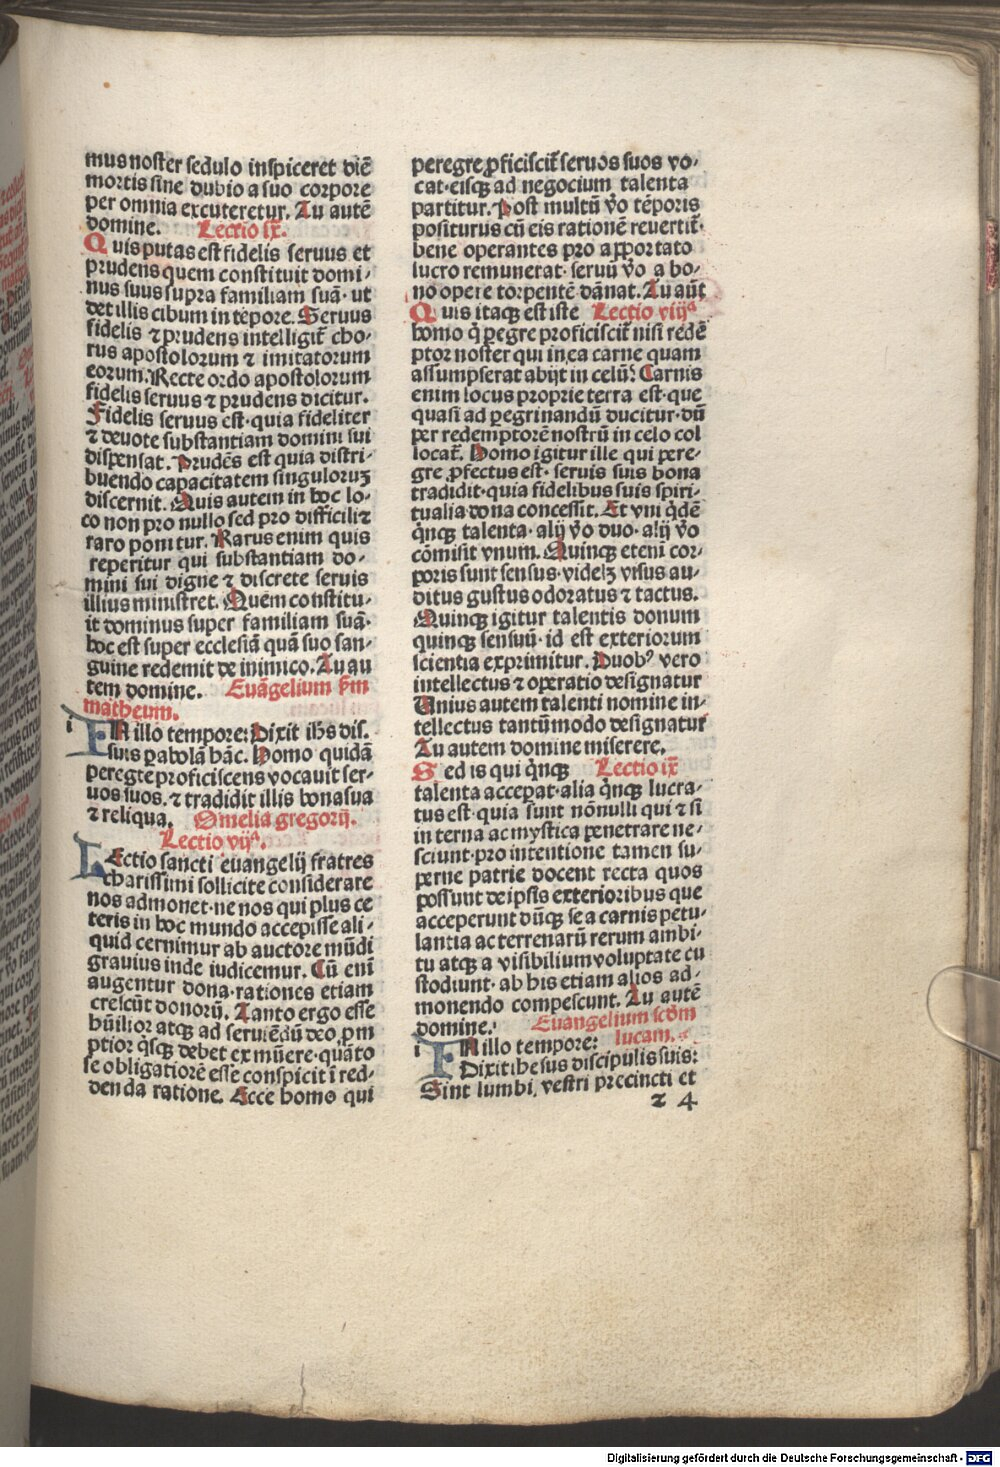 mus noster sedulo inspiceret diē
mortis sine dubio a suo corpore
per omnia excuteretur. Tu autē
domine. Lectio ix.
Quis putas est fidelis seruus et
prudens quem constituit domi-
nus suus supra familiam suā· ut
det illis cibum in tēpore. Seruus
fidelis ⁊ prudens intelligit̄ cho-
rus apostolorum ⁊ imitatorum
eorum. Recte ordo apostolorum
fidelis seruus ⁊ prudens dicitur.
Fidelis seruus est· quia fideliter
⁊ deuote substantiam domini sui
dispensat. Prudēs est quia distri-
buendo capacitatem singuloruꝫ
discernit. Quis autem in hoc lo-
co non pro nullo sed pro difficili ⁊
raro ponitur. Rarus enim quis
reperitur qui substantiam do-
mini sui digne ⁊ discrete seruis
illius ministret. Quem constitu-
it dominus super familiam suā·
hoc est super ecclesiā quā suo san-
guine redemit de inimico. Tu au
tem domine. Euāgelium scd̄m
matheum.
IN illo tempore: Dixit ih̄s dis.
suis ꝑabolā hāc. Homo quidā
peregre proficiscens vocauit ser-
uos suos. ⁊ tradidit illis bona sua
⁊ reliqua. Omelia gregorij.
Lectio vijᵃ.
LEctio sancti euangelij fratres
charissimi sollicite considerare
nos admonet· ne nos qui plus ce
teris in hoc mundo accepisse ali-
quid cernimur ab auctore mūdi
grauius inde iudicemur. Cū enī
augentur dona· rationes etiam
crescūt donorū. Tanto ergo esse
hūilior atqꝫ ad seruiēdū deo ꝓm
ptior q̇sqꝫ debet ex mūere· quāto
se obligatiorē esse conspicit ī red-
denda ratione. Ecce homo qui
peregre ꝓficiscit̄ seruos suos vo-
cat· eisqꝫ ad negocium talenta
partitur. Post multū v̊o tēporis
positurus cū eis rationē reuertit̄·
bene operantes pro apportato
lucro remunerat· seruū v̊o a bo-
no opere torpentē dānat. Tu aūt
Quis itaqꝫ est iste Lectio viijᵃ
homo q̇ ꝑegre proficiscit̄ nisi redē
ptor noster qui in ea carne quam
assumpserat abijt in celū: Carnis
enim locus proprie terra est· que
quasi ad ꝑegrinandū ducitur· dū
per redemptorē nostrū in celo col
locat̄. Homo igitur ille qui pere-
gre ꝓfectus est· seruis suis bona
tradidit· quia fidelibus suis spiri-
tualia dona concessit. Et vni q̇dē
q̇nqꝫ talenta· alij v̊o duo· alij v̊o
cōmisit vnum. Quinqꝫ etenī cor-
ꝑoris sunt sensus· videlꝫ visus au-
ditus gustus odoratus ⁊ tactus.
Quinqꝫ igitur talentis donum
quinqꝫ sensuū· id est exteriorum
scientia exprimitur. Duobꝰ vero
intellectus ⁊ operatio designatur
Unius autem talenti nomine in-
tellectus tantūmodo designatur
Tu autem domine miserere.
Sed is qui q̇nqꝫ Lectio ix
talenta acceꝑat· alia q̇nqꝫ lucra-
tus est· quia sunt nōnulli qui ⁊ si
interna ac mystica penetrare ne-
sciunt· pro intentione tamen su-
ꝑerne patrie docent recta quos
possunt de ipsis exterioribus que
acceperunt dūqꝫ se a carnis petu-
lantia ac terrenarū rerum ambi-
tu atqꝫ a visibilium voluptate cu
stodiunt· ab his etiam alios ad-
monendo compescunt. Tu autē
domine. Euangelium scd̄m
IN illo tempore: lucam.
Dixit ihesus discipulis suis:
Sint lumbi vestri precincti et
z 4
Digitalisierung gefördert durch die Deutsche Forschungsgemeinschaft - DFG